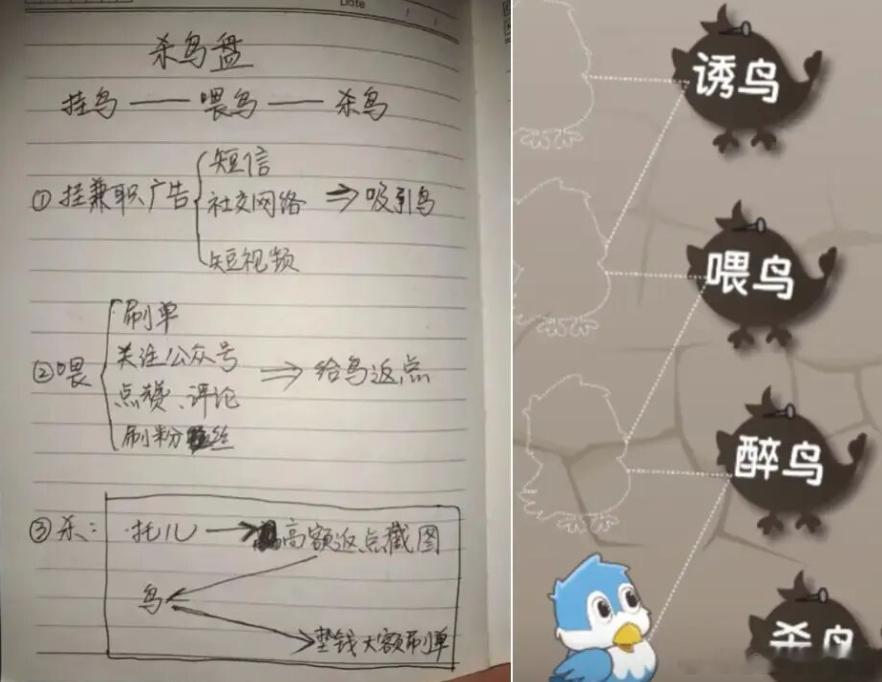 Date
杀鸟盘
挂鸟 —— 喂鸟 —— 杀鸟
①挂兼职广告 短信
社交网络 ⇒ 吸引鸟
短视频
②喂 刷单
关注公众号 ⇒ 给鸟返点
点赞、评论
刷粉丝
③杀: 托儿 → 高额返点截图
鸟
垫钱大额刷单
诱鸟
喂鸟
醉鸟
杀鸟